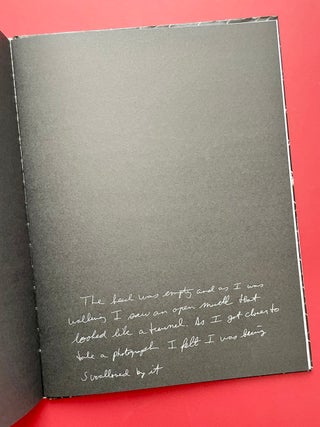 The land was empty and as I was
walking I saw an open mouth that
looked like a tunnel. As I got closer to
take a photograph I felt I was being
swallowed by it